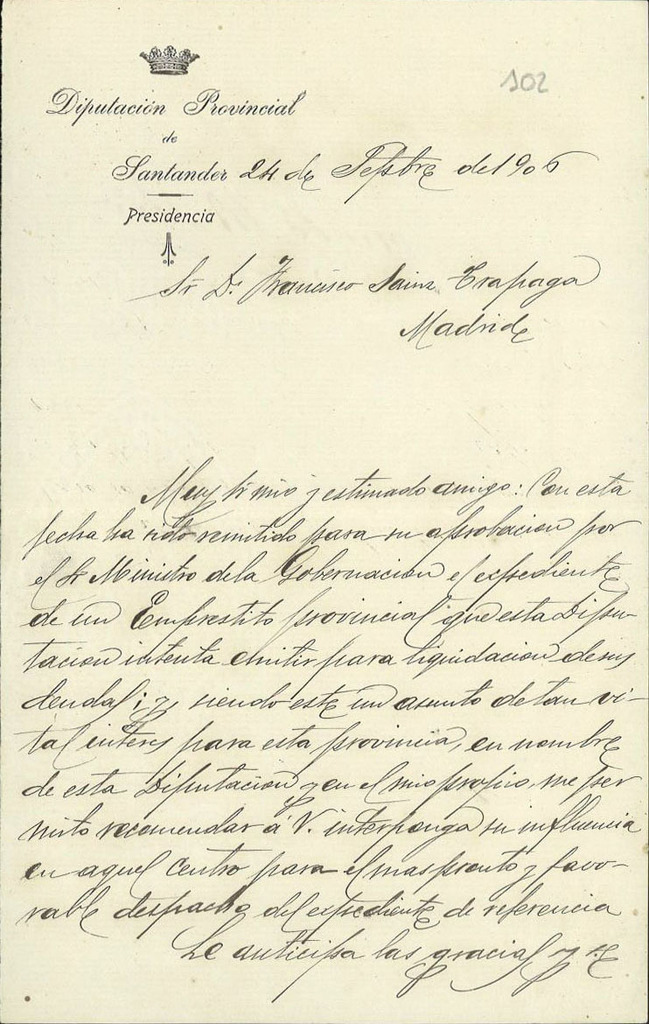 102
Diputación Provincial
de
Santander 24 de Sepbre de 1906
Presidencia
Sr Dn Francisco Sainz Trapaga
Madrid
Muy Sr mio y estimado amigo: Con esta
fecha ha sido remitido para su aprobacion por
el Sr Ministro de la Gobernacion el expediente
de un Emprestito provincial que esta Dipu-
tacion intenta emitir para liquidacion de sus
deudas; y siendo este un asunto de tan vi-
tal interes para esta provincia, en nombre
de esta Diputacion y en el mio propio, me per
mito recomendar á V. interponga su influencia
en aquel centro para el mas pronto y favo-
rable despacho del expediente de referencia
Le anticipa las gracias y se